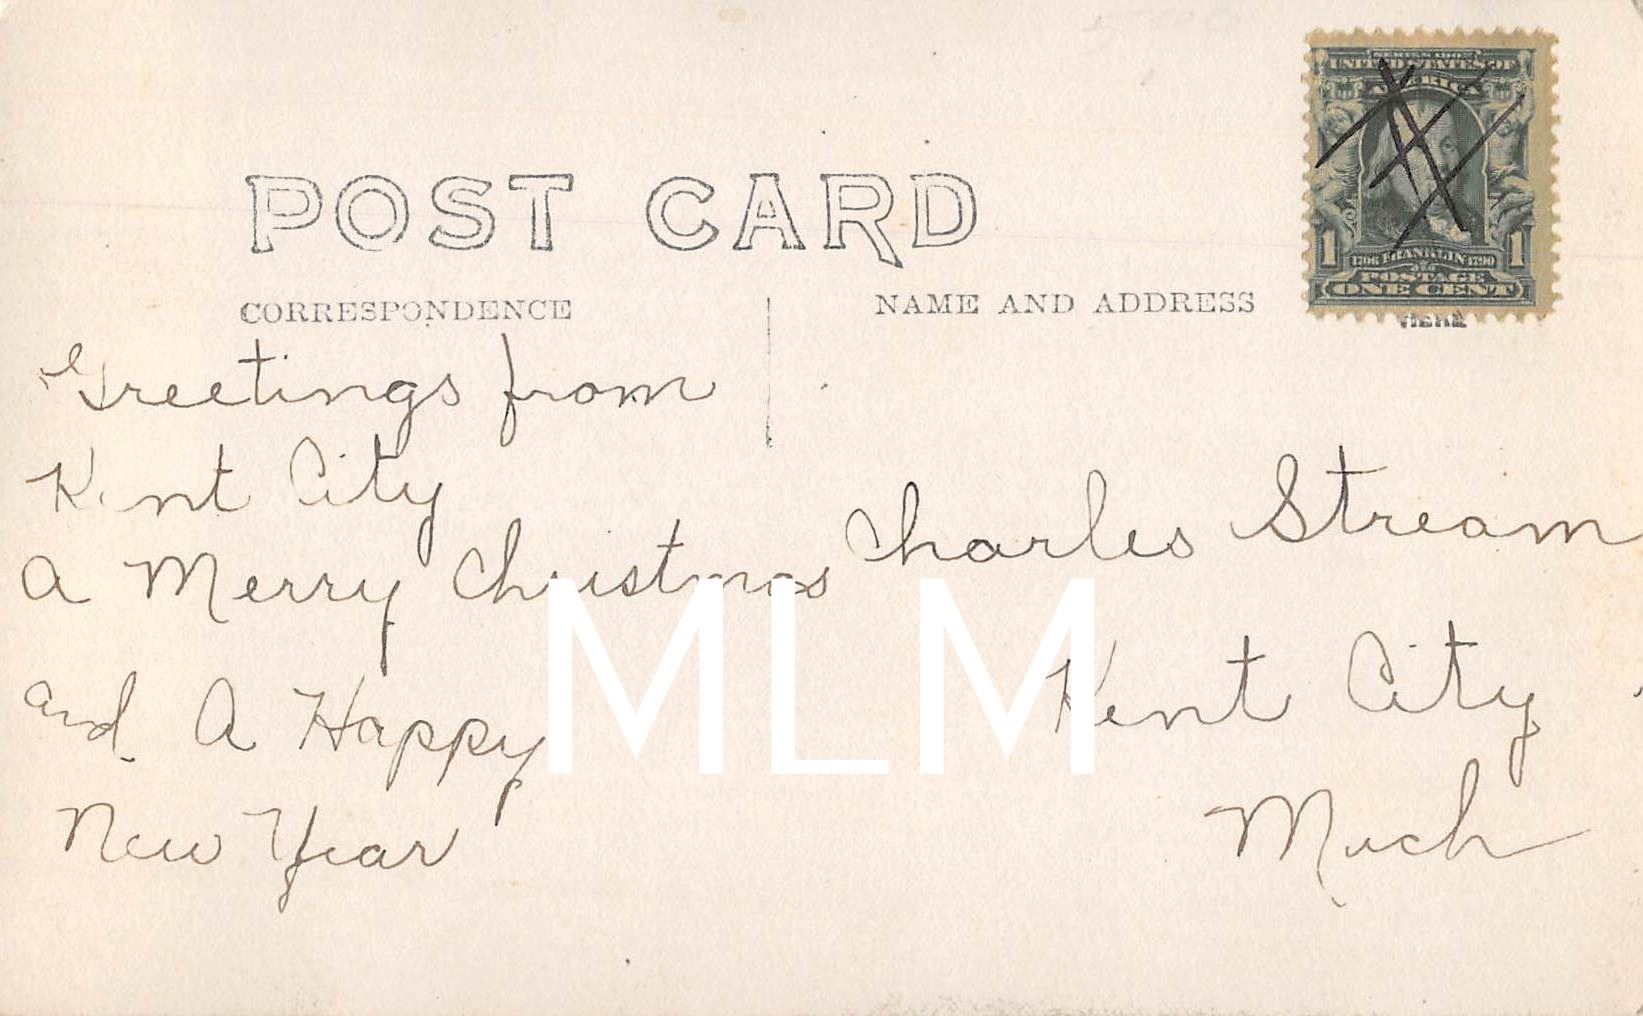 POST CARD
CORRESPONDENCE
NAME AND ADDRESS
SERIES 1902
UNITED STATES OF
AMERICA
1 1706 FRANKLIN 1790 1
POSTAGE
ONE CENT
HERE
Greetings from
Kent City
A Merry Christmas
and A Happy
New Year
Charles Stream
Kent City
Mich
MLM